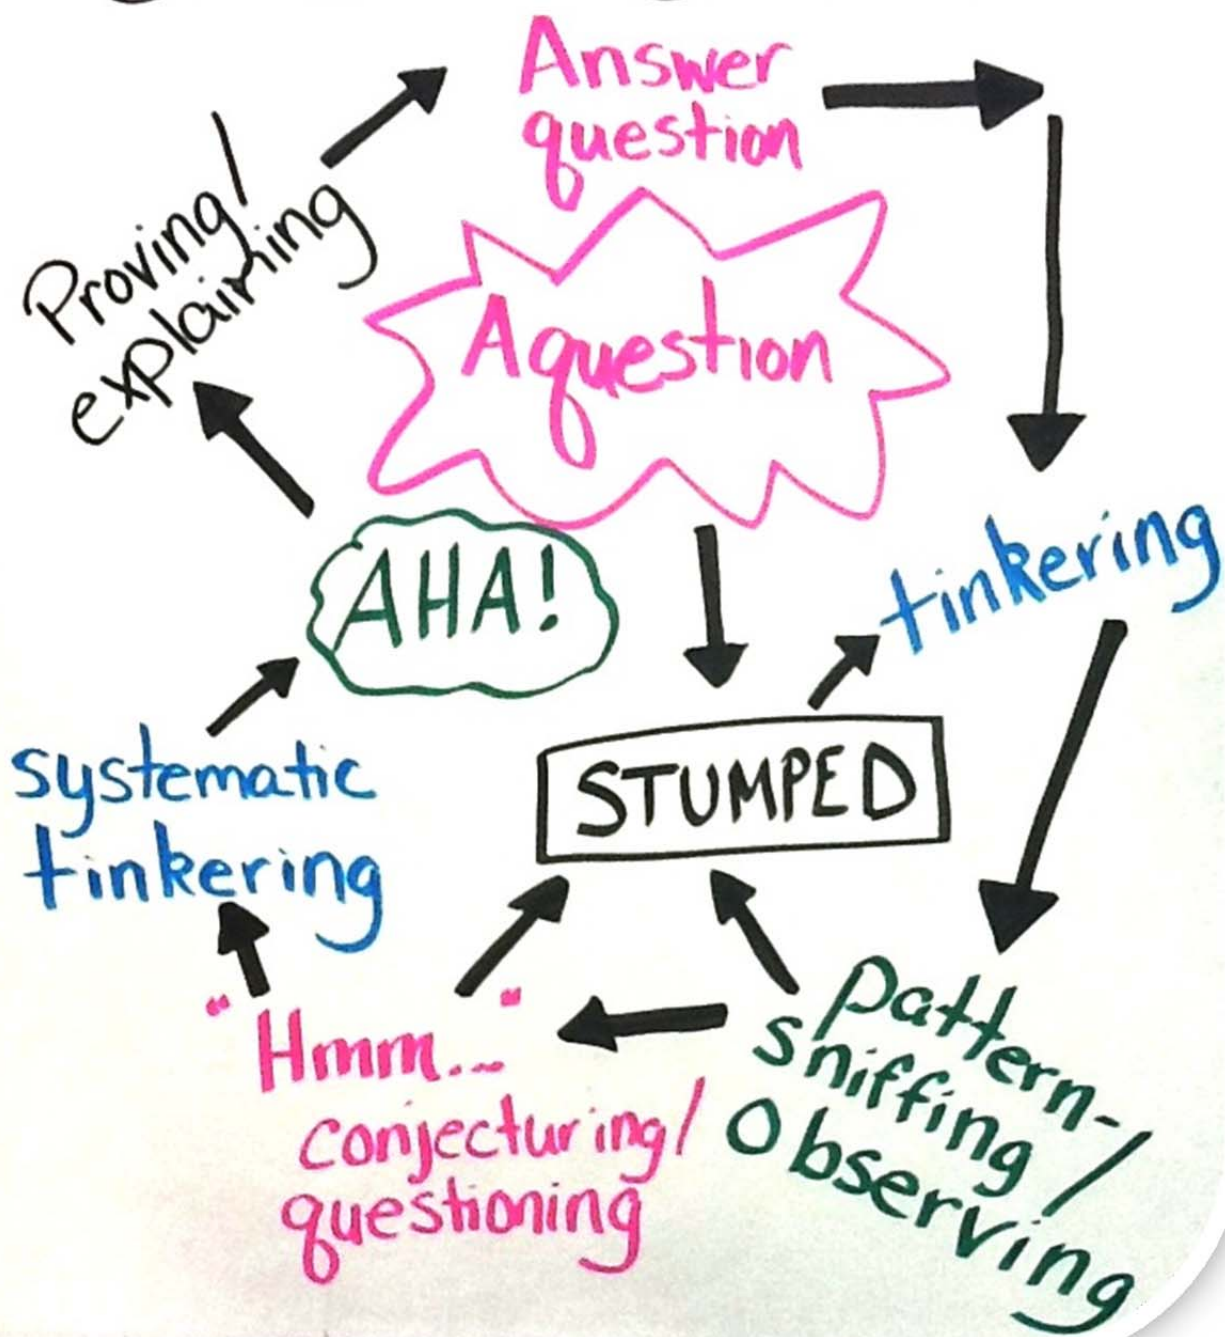 Answer
question
Proving/
explaining
A question
AHA!
tinkering
STUMPED
systematic
tinkering
"Hmm..."
conjecturing/
questioning
pattern-
sniffing/
Observing